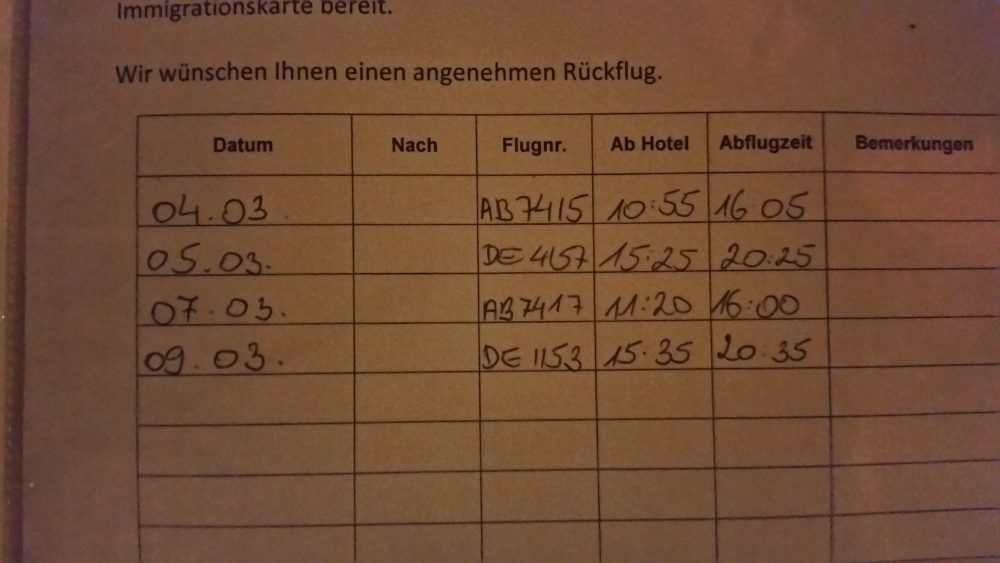 Immigrationskarte bereit.
Wir wünschen Ihnen einen angenehmen Rückflug.
Datum Nach Flugnr. Ab Hotel Abflugzeit Bemerkungen
04.03. AB7415 10:55 16 05
05.03. DE 4157 15:25 20:25
07.03. AB7417 11:20 16:00
09.03. DE 1153 15.35 20:35